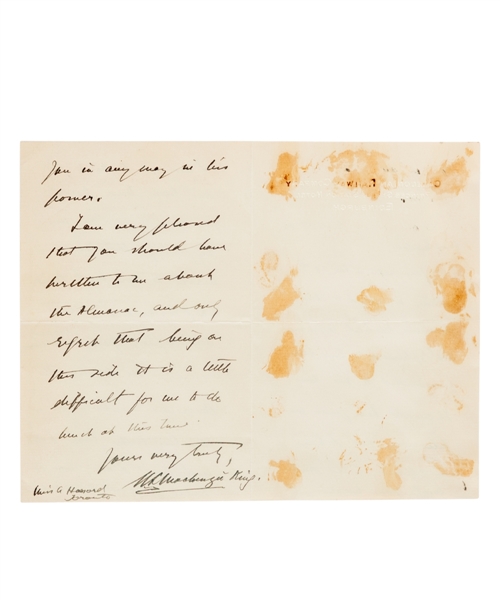 you in any way in his
power.
I am very pleased
that you should have
written to me about
the Almanac, and only
regret that being on
this side it is a little
difficult for me to do
much at this time.
Yours very truly,
W L Mackenzie King.
Miss G Howard
Toronto